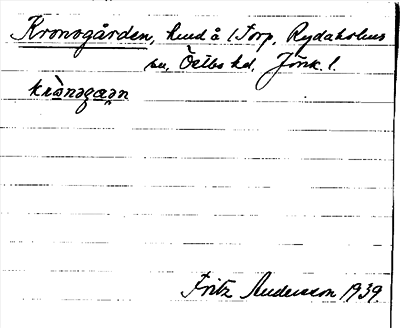 Kronogården, hmd å 1 Torp, Rydaholms
sn, Östbo hd, Jönk. l.
krònəgæən
Fritz Andersson 1939